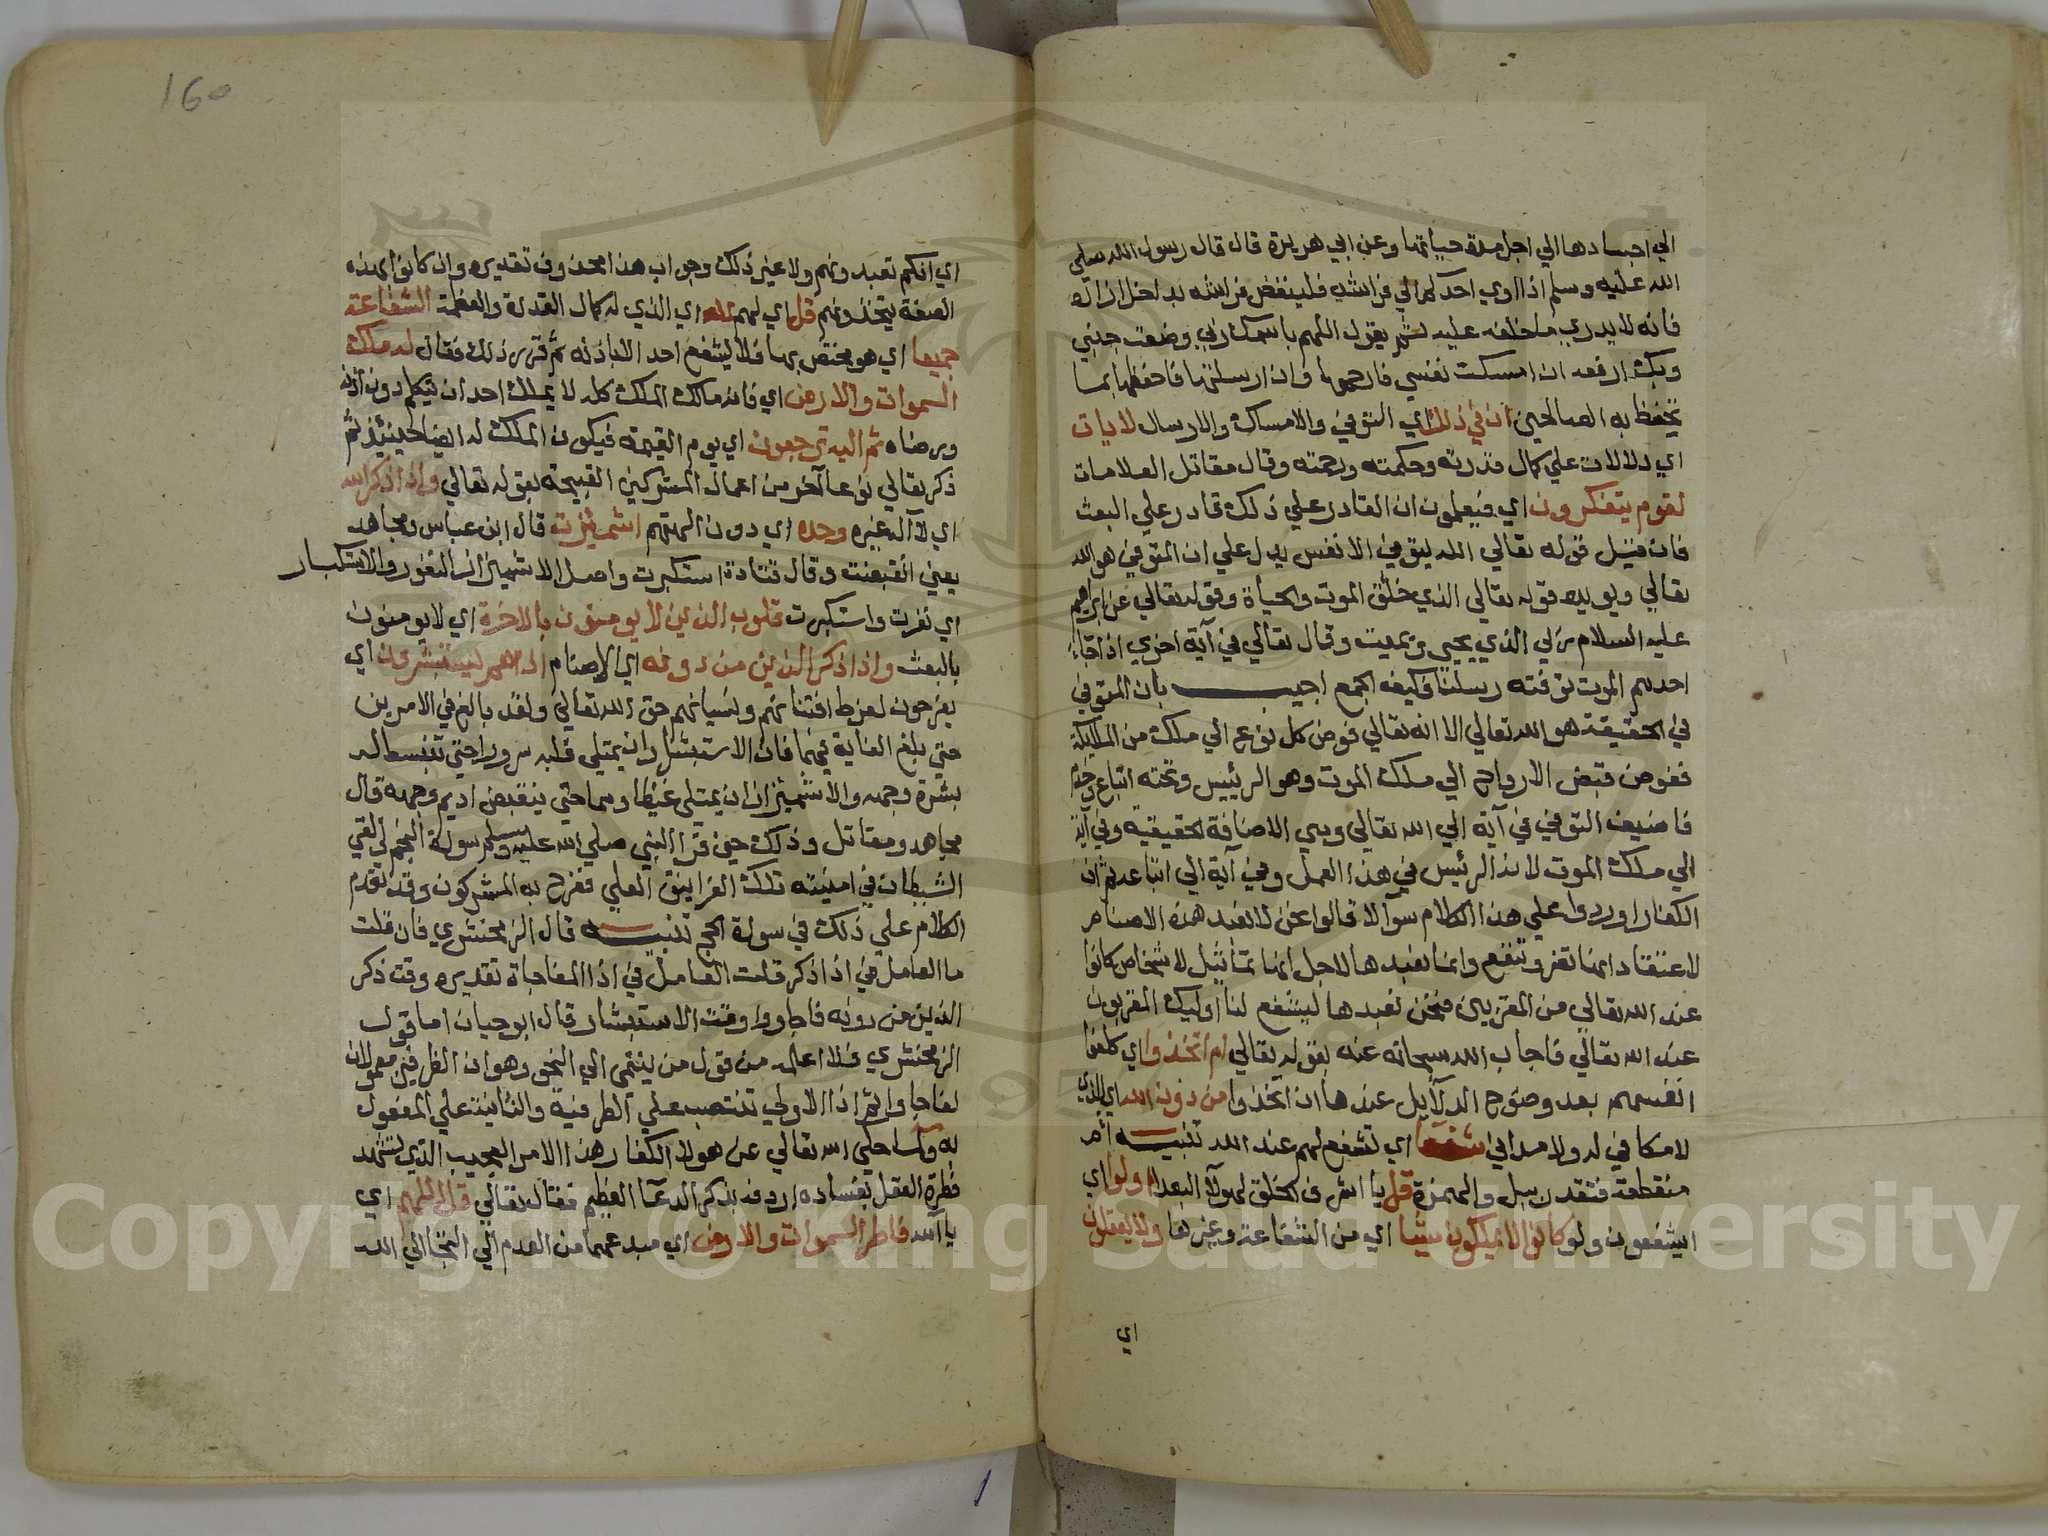 الي اجسادها الي اجل مدة حياتها وعن ابي هريرة قال قال رسول الله صلى
الله عليه وسلم اذا اوي احدكم الي فراشه فلينفض فراشه بداخل ازاره
فانه لا يدري ما خلفه عليه ثم يقول اللهم باسمك ربي وضعت جنبي
وبك ارفعه ان امسكت نفسي فارحمها وان ارسلتها فاحفظها بما
تحفظ به الصالحين ان في ذلك اي التوفي والامساك والارسال لايات
اي دلالات علي كمال قدرته وحكمته ورحمته وقال مقاتل العلامات
لقوم يتفكرون اي فيعلمون ان القادر علي ذلك قادر علي البعث
فان قيل قوله تعالي الله يتوفي الانفس يدل علي ان المتوفي هو الله
تعالي ويويده قوله تعالي الذي خلق الموت والحياة وقوله تعالي عن ابراهيم
عليه السلام ربي الذي يحيي ويميت وقال تعالي في آية اخري اذا جاء
احدهم الموت توفته رسلنا فكيف الجمع اجيب بان المتوفي
في الحقيقة هو الله تعالي الا انه تعالي فوض كل نوع الي ملك من الملايكة
ففوض قبض الارواح الي ملك الموت وهو الرئيس وتحته اتباع وخدم
فاضيف التوفي في آية الي الله تعالي وهي الاضافة الحقيقية وفي آية
الي ملك الموت لانه الرئيس في هذا العمل وفي آية الي اتباعه ثم ان
الكفار اوردوا علي هذا الكلام سوآلا قالوا نحن لا نعبد هذه الاصنام
لاعتقاد انها تضر وتنفع وانما نعبدها لاجل انها تماثيل لاشخاص كانوا
عند الله تعالي من المقربين فنحن نعبدها ليشفع لنا اوليك المقربون
عند الله تعالي فاجاب الله سبحانه عنه بقوله تعالي ام اتخذوا اي كلفوا
انفسهم بعد وضوح الدلآيل عندها ان اتخذوا من دون الله اي الذي
لا مكافي له ولا مداني شفعآ اي تشفع لهم عند الله تنبيه أم
منقطعة فتقدر ببل والهمزة قل يا اشرف الخلق لهولآ البعدا أولو اي
ايشفعون ولو كانوا لا يملكون شيئا اي من الشفاعة وغيرها ولا يعقلون
اي
160
اي انكم تعبدونهم ولا غير ذلك وجواب هذا محذوف تقديره وان كانوا بهذه
الصفة يتخذونهم قل اي لهم لله اي الذي له كمال القدرة والعظمة الشفاعة
جميعا اي هو مختص بها فلا يشفع احد الا باذنه ثم قرر ذلك فقال له ملك
السموات والارض اي فانه مالك الملك كله لا يملك احد ان يتكلم دون اذنه
ورضاه ثم اليه ترجعون اي يوم القيمة فيكون الملك له ايضا حينئذ ثم
ذكر تعالي نوعا آخر من اعمال المشركين القبيحة بقوله تعالي واذا ذكر الله
اي لا آله غيره وحده اي دون الهتهم اشمئزت قال ابن عباس ومجاهد
يعني انقبضت وقال قتادة استكبرت واصل الاشميزاز النفور والاستكبار
اي نفرت واستكبرت قلوب الذين لا يومنون بالاخرة اي لا يومنون
بالبعث واذا ذكر الذين من دونه اي الاصنام اذا هم يستبشرون اي
يفرحون لفرط افتتانهم ونسيانهم حق الله تعالي ولقد بالغ في الامرين
حتي بلغ الغاية فيهما فان الاستبشار ان يمتلي قلبه سرورا حتي تنبسط له
بشرة وجهه والاشميزاز ان يمتلي غيظا وهما حتي ينقبض اديم وجهه قال
مجاهد ومقاتل وذلك حين قرا النبي صلي الله عليه وسلم سورة النجم القي
الشيطان في امنيته تلك الغرانيق العلي ففرح به المشركون وقد تقدم
الكلام علي ذلك في سورة الحج تنبيه قال الزمخشري فان قلت
ما العامل في اذا ذكر قلت العامل في اذا المفاجاة تقديره وقت ذكر
الذين من دونه فاجاووا وقت الاستبشار قال ابو حيان اما قول
الزمخشري فلا اعلمه من قول من ينتمي الي النحو وهو ان الظرفين معمولان
لفاجاوا ثم اذا الاولي تنتصب علي الظرفية والثانية علي المفعول
له ولما حكي الله تعالي عن هولا الكفار هذا الامر العجيب الذي تشهد
فطرة العقل بفساده اردفه بذكر الدعآ العظيم فقال تعالي قل اللهم اي
يا الله فاطر السموات والارض اي مبدعهما من العدم الي التجا الي الله